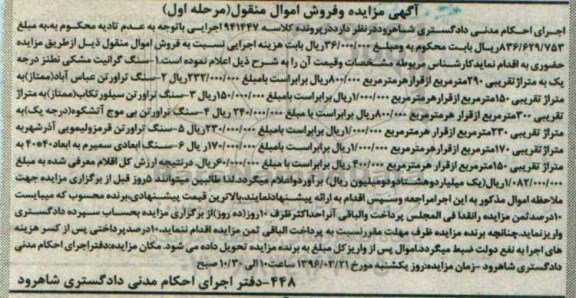 آگهی مزایده وفروش اموال منقول(مرحله اول)
اجرای احکام مدنی دادگستری شاهروددرنظر دارددرپرونده کلاسه ۹۴۱۴۴۷اجرایی باتوجه به عدم تادیه محکوم به،به مبلغ
۸۳۶/۶۲۹/۷۵۳ریال بابت محکوم به ومبلغ ۳۶/۰۰۰/۰۰۰ریال بابت هزینه اجرایی نسبت به فروش اموال منقول ذیل ازطریق مزایده
حضوری به اقدام نماید کارشناس مربوطه مشخصات وقیمت آن را به شرح ذیل اعلام نموده است:۱-سنگ گرانیت مشکی نطنز درجه
یک به متراژ تقریبی ۲۹۰مترمربع ازقرارهرمترمربع ۸۰۰/۰۰۰ریال برابراست بامبلغ ۲۳۲/۰۰۰/۰۰۰ریال ۲-سنگ تراورتن عباس آباد(ممتاز)به
متراژ تقریبی ۱۵۰مترمربع ازقرارهرمترمربع ۱/۰۰۰/۰۰۰ریال برابراست بامبلغ ۱۵۰/۰۰۰/۰۰۰ریال ۳-سنگ تراورتن سیلورتکاب(ممتاز)به متراژ
تقریبی ۳۰۰مترمربع ازقرار هرمترمربع ۸۰۰/۰۰۰ریال برابراست با مبلغ ۲۴۰/۰۰۰/۰۰۰ ریال ۴-سنگ تراورتن بی موج آتشکوه(درجه یک)به
متراژ تقریبی ۲۳۰مترمربع ازقرارهرمترمربع ۱/۰۰۰/۰۰۰ریال برابراست بامبلغ ۲۳۰/۰۰۰/۰۰۰ریال ۵-سنگ تراورتن قرمزولیمویی آذرشهربه
متراژ تقریبی ۱۷۰مترمربع ازقرارهرمترمربع ۱/۰۰۰/۰۰۰ریال برابراست بامبلغ ۱۷۰/۰۰۰/۰۰۰ریال ۶-سنگ ابعادی سمیرم به ابعاد۴۰*۴۰ به
متراژ تقریبی ۱۵۰مترمربع ازقرارهرمترمربع ۴۰۰/۰۰۰ ریال برابراست با مبلغ ۶۰/۰۰۰/۰۰۰ریال، درنتیجه ارزش کل اقلام معرفی شده به مبلغ
۱/۰۸۲/۰۰۰/۰۰۰ریال(یک میلیاردوهشتادودومیلیون ریال) برآورداعلام میگردد.لذا طالبین میتوانند ۵روز قبل از برگزاری مزایده جهت
ملاحظه اموال مذکور به این اجرامراجعه وسپس اقدام به ارائه پیشنهادنمایند.بالاترین قیمت پیشنهادی،برنده محسوب که میبایست
۱۰درصدثمن مزایده رانقدا فی المجلس پرداخت والباقی آنراحداکثرظرف ۱۰روز(ده روز)از برگزاری مزایده بحساب سپرده دادگستری
واریزنماید.چنانچه برنده مزایده ظرف مهلت مقررنسبت به پرداخت الباقی ثمن مزایده اقدام ننماید،۱۰درصدپرداختی پس از کسر هزینه
های اجرا به نفع دولت ضبط میگردد،اموال پس از واریز کل مبلغ به برنده مزایده تحویل داده می شود. مکان مزایده:دفتراجرای احکام مدنی
دادگستری شاهرود -زمان مزایده:روز یکشنبه مورخ ۱۳۹۶/۰۳/۲۱ ساعت۱۰ الی ۱۰/۳۰ صبح
۴۴۸-دفتر اجرای احکام مدنی دادگستری شاهرود